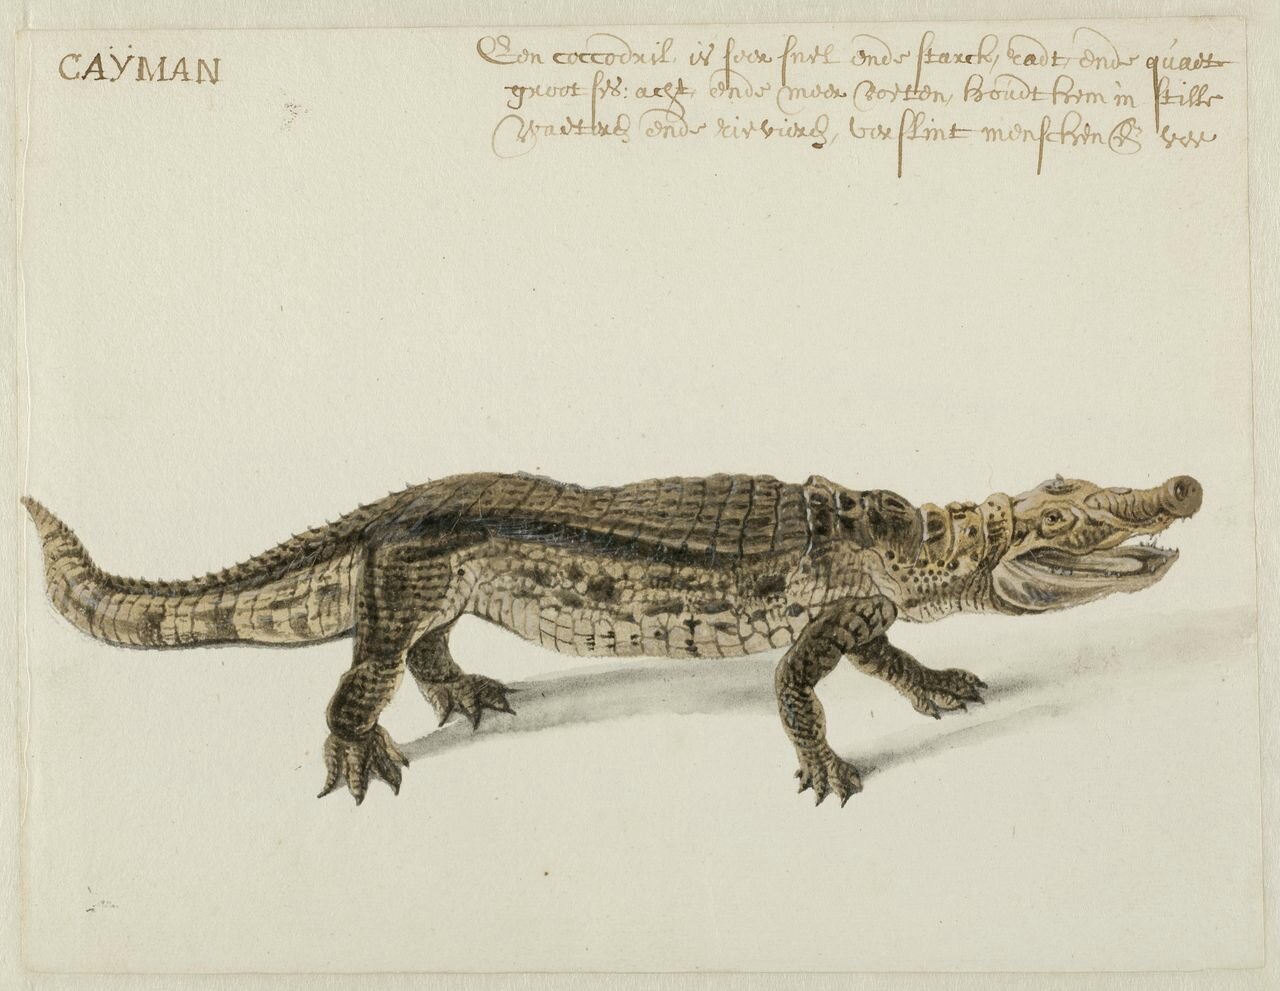 CAŸMAN
Een coccodril, is seer snel ende starck, radt, ende quaet
groot ses: acht, ende meer Voeten, houdt hem in stille
Waeteren ende rievieren, verslint menschen & vee